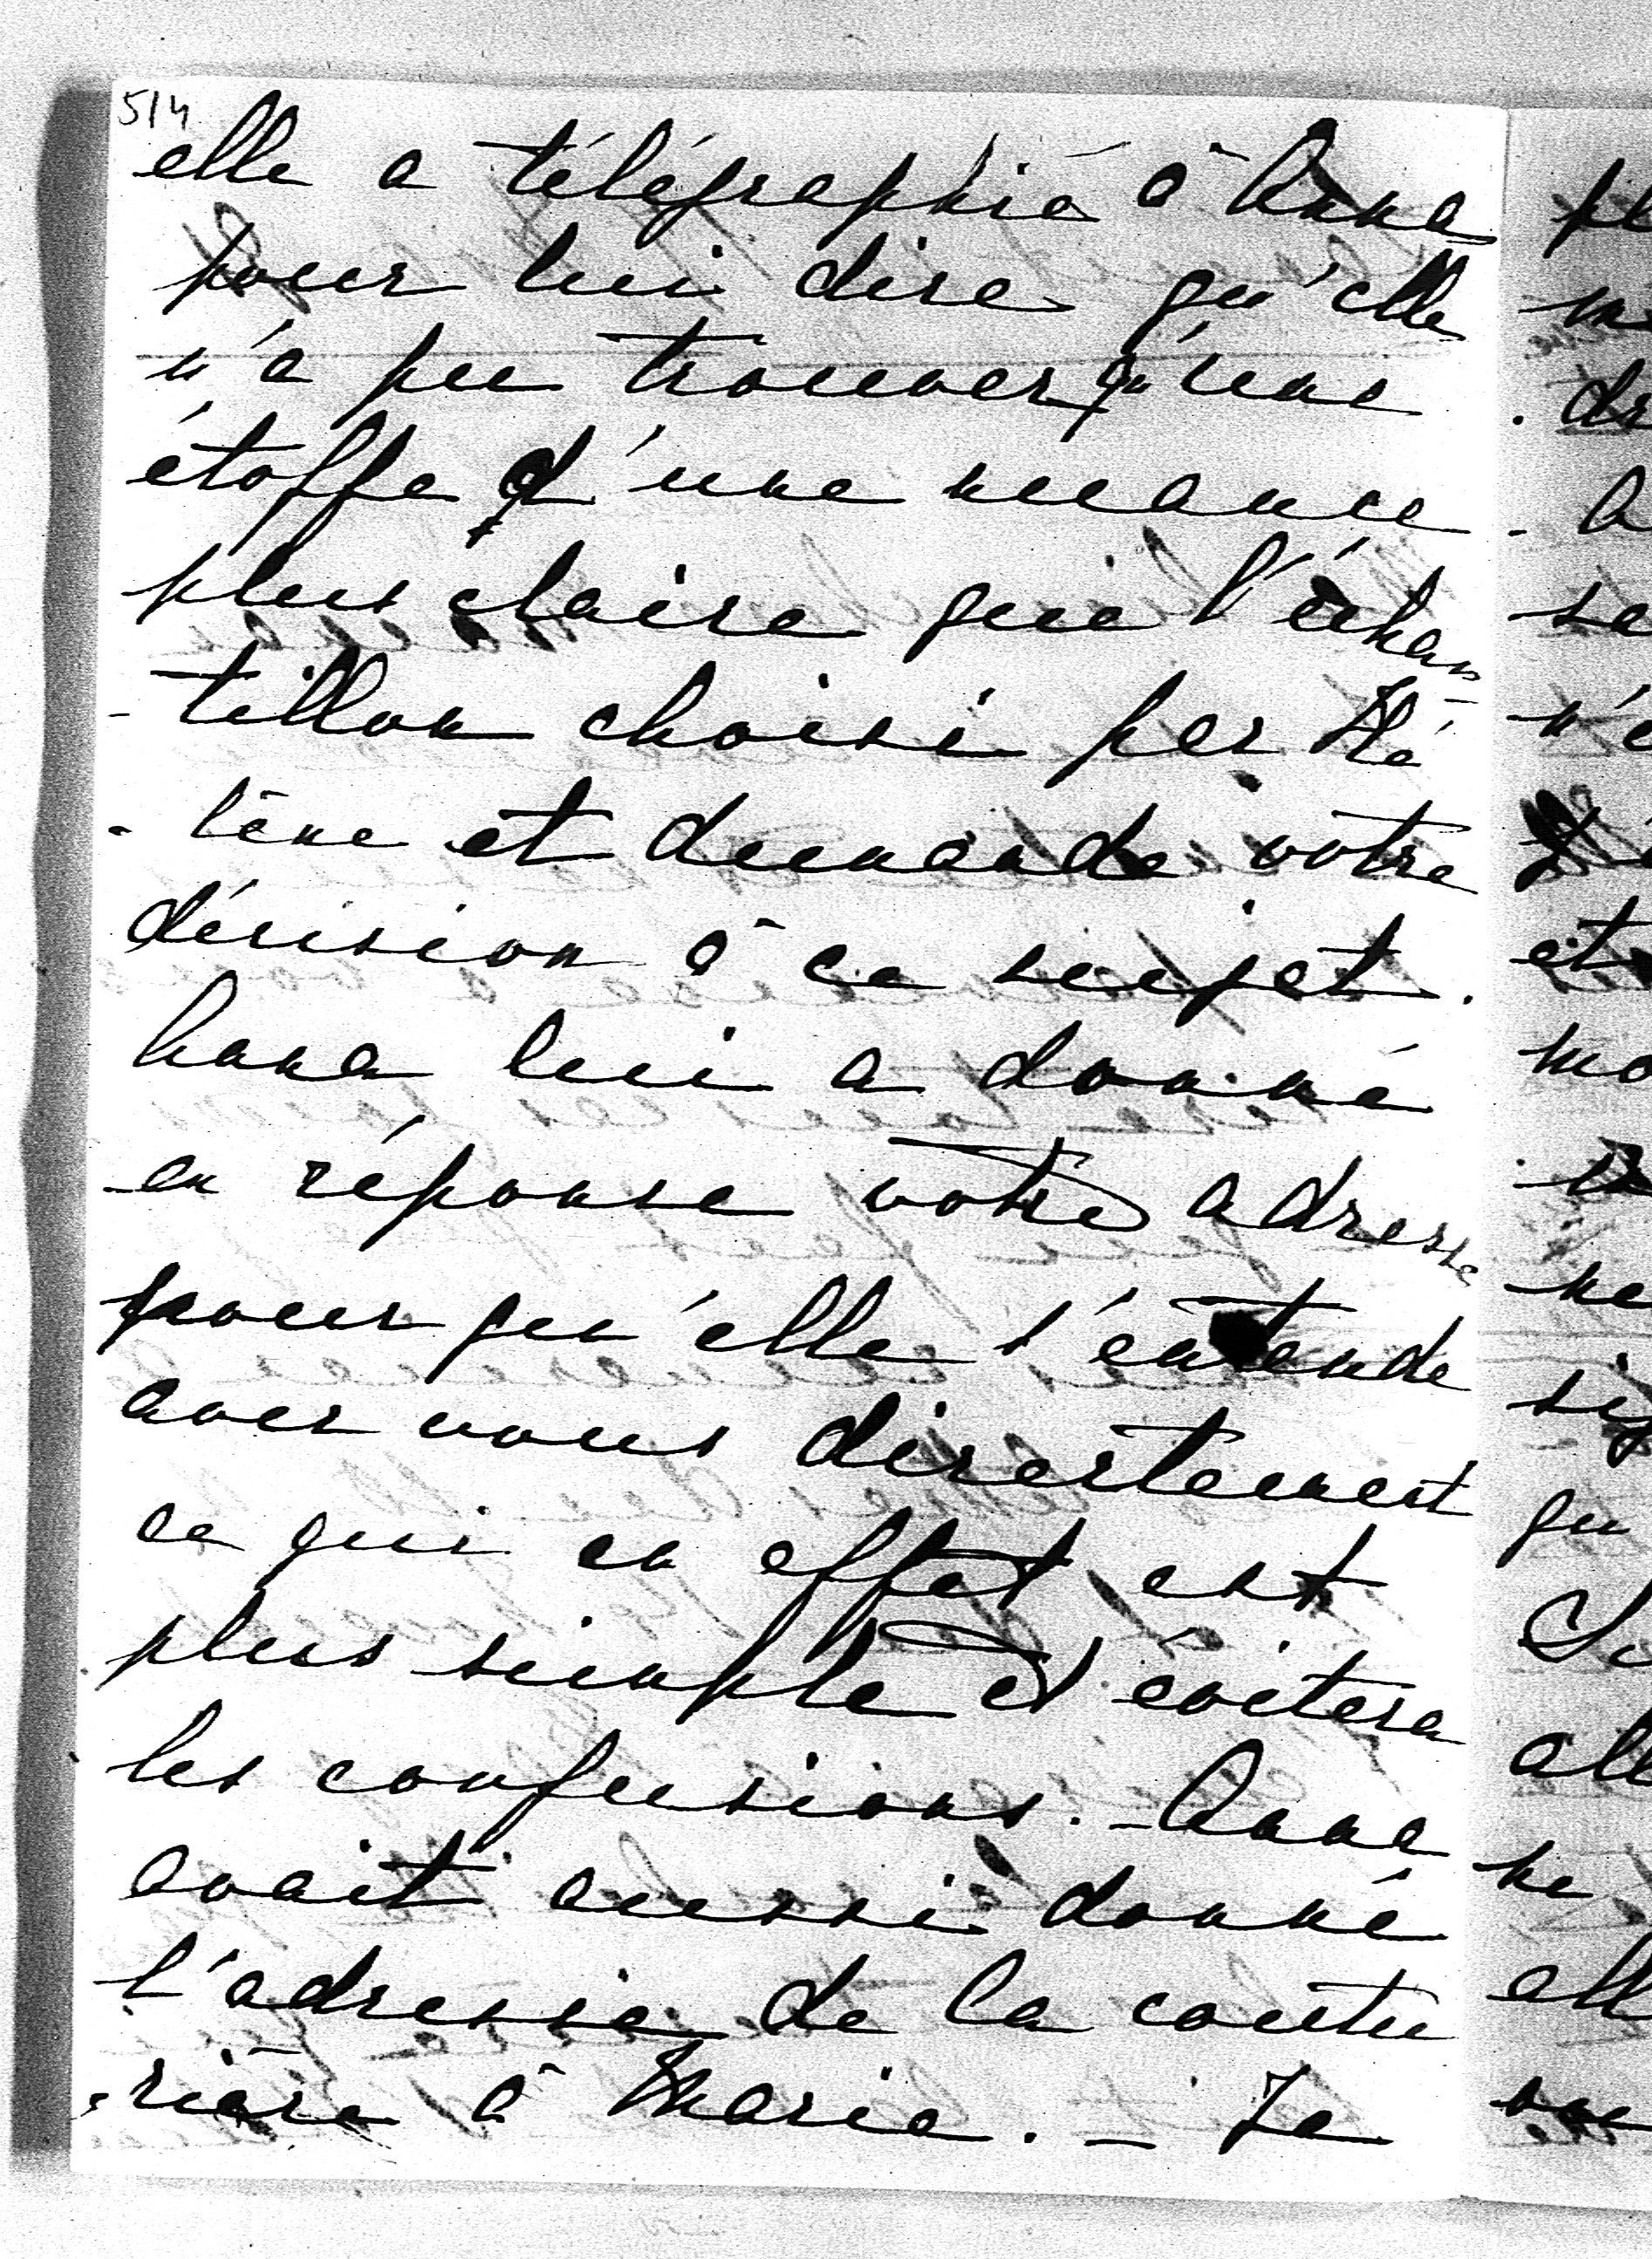 514
elle a télégraphié à Anna
pour lui dire qu'elle
n'a pu trouver qu'une
étoffe d'une nuance
plus claire que l'échan-
-tillon choisi par Hé-
-lène et demande votre
décision à ce sujet.
Anna lui a donné
en réponse votre adresse
pour qu'elle s'entende
avec vous directement
ce qui en effet est
plus simple et évitera
les confusions. - Anna
avait aussi donné
l'adresse de la coutu
-rière à Marie. - Je